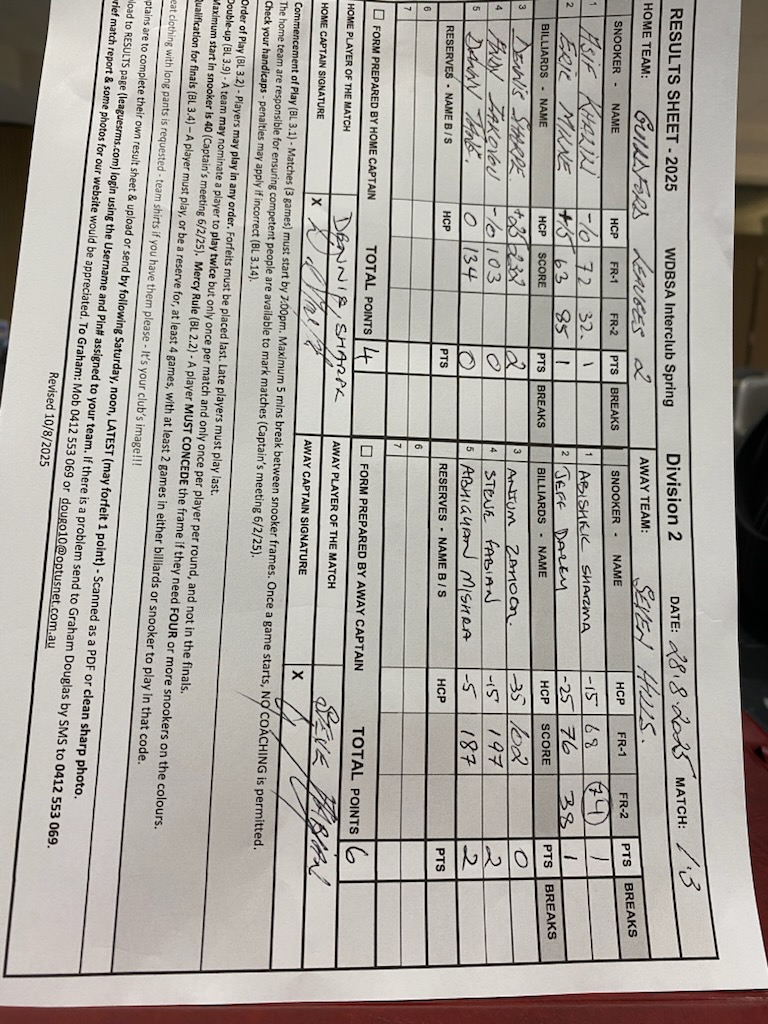 RESULTS SHEET - 2025 WDBSA Interclub Spring Division 2 DATE: 28.8.2025 MATCH: 13
HOME TEAM: GUILDFORD LEAGUES 2 AWAY TEAM: SEVEN HILLS.
SNOOKER - NAME HCP FR-1 FR-2 PTS BREAKS SNOOKER - NAME HCP FR-1 FR-2 PTS BREAKS
1 -10 72 32. 1 1 ABISHEK SHARMA -15 68 74 1
2 ERIC MILNE +15 63 85 1 2 JEFF DALEY -25 76 38 1
BILLIARDS - NAME HCP SCORE PTS BREAKS BILLIARDS - NAME HCP SCORE PTS BREAKS
3 DENNIS SHARPE +25 232 2 3 -35 102 0
4 -10 103 0 4 STEVE FABIAN -15 197 2
5 0 134 0 5 ABHIGHAN MISHRA -5 187 2
RESERVES - NAME B / S HCP PTS RESERVES - NAME B / S HCP PTS
6 6
7 7
FORM PREPARED BY HOME CAPTAIN TOTAL POINTS 4 FORM PREPARED BY AWAY CAPTAIN TOTAL POINTS 6
HOME PLAYER OF THE MATCH DENNIS SHARPE AWAY PLAYER OF THE MATCH STEVE FABIAN
HOME CAPTAIN SIGNATURE X AWAY CAPTAIN SIGNATURE X
Commencement of Play (BL 3.1) - Matches (3 games) must start by 7:00pm. Maximum 5 mins break between snooker frames. Once a game starts, NO COACHING is permitted.
The home team are responsible for ensuring competent people are available to mark matches (Captain's meeting 6/2/25).
Check your handicaps - penalties may apply if incorrect (BL 3.14).
Order of Play (BL 3.2) - Players may play in any order. Forfeits must be placed last. Late players must play last.
Double-up (BL 3.9) - A team may nominate a player to play twice but only once per match and only once per player per round, and not in the finals.
Maximum start in snooker is 40 (Captain's meeting 6/2/25). Mercy Rule (BL 2.2) - A player MUST CONCEDE the frame if they need FOUR or more snookers on the colours.
ualification for finals (BL 3.4) – A player must play, or be a reserve for, at least 4 games, with at least 2 games in either billiards or snooker to play in that code.
eat clothing with long pants is requested - team shirts if you have them please - It's your club's image!!!
ptains are to complete their own result sheet & upload or send by following Saturday, noon, LATEST (may forfeit 1 point) - Scanned as a PDF or clean sharp photo.
load to RESULTS page (leaguesrms.com) login using the Username and Pin# assigned to your team. If there is a problem send to Graham Douglas by SMS to 0412 553 069.
rief match report & some photos for our website would be appreciated. To Graham: Mob 0412 553 069 or dougo10@optusnet.com.au
Revised 10/8/2025